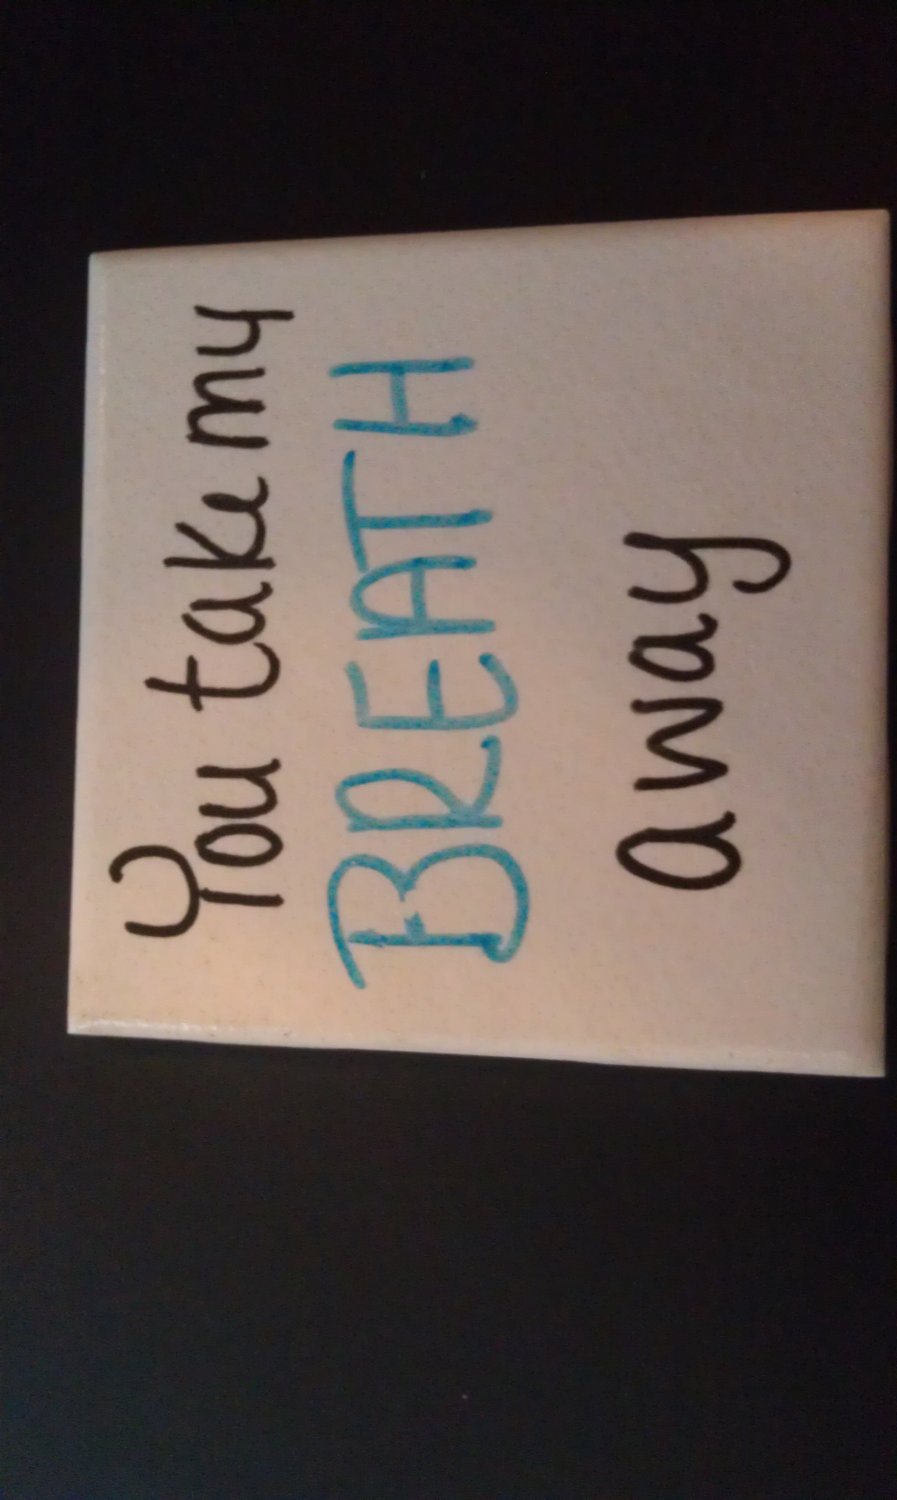 You take my
BREATH
away